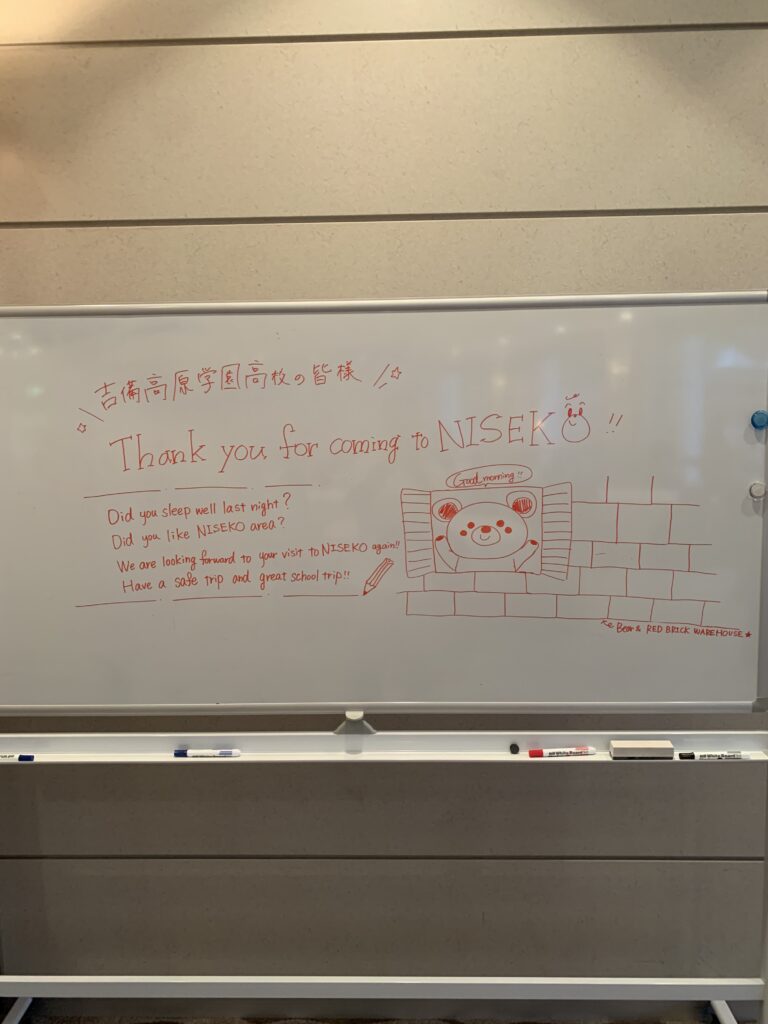 吉備高原学園高校の皆様
Thank you for coming to NISEKO!!
Did you sleep well last night?
Did you like NISEKO area?
We are looking forward to your visit to NISEKO again!!
Have a safe trip and great school trip!!
Good morning!!
Bear & RED BRICK WAREHOUSE